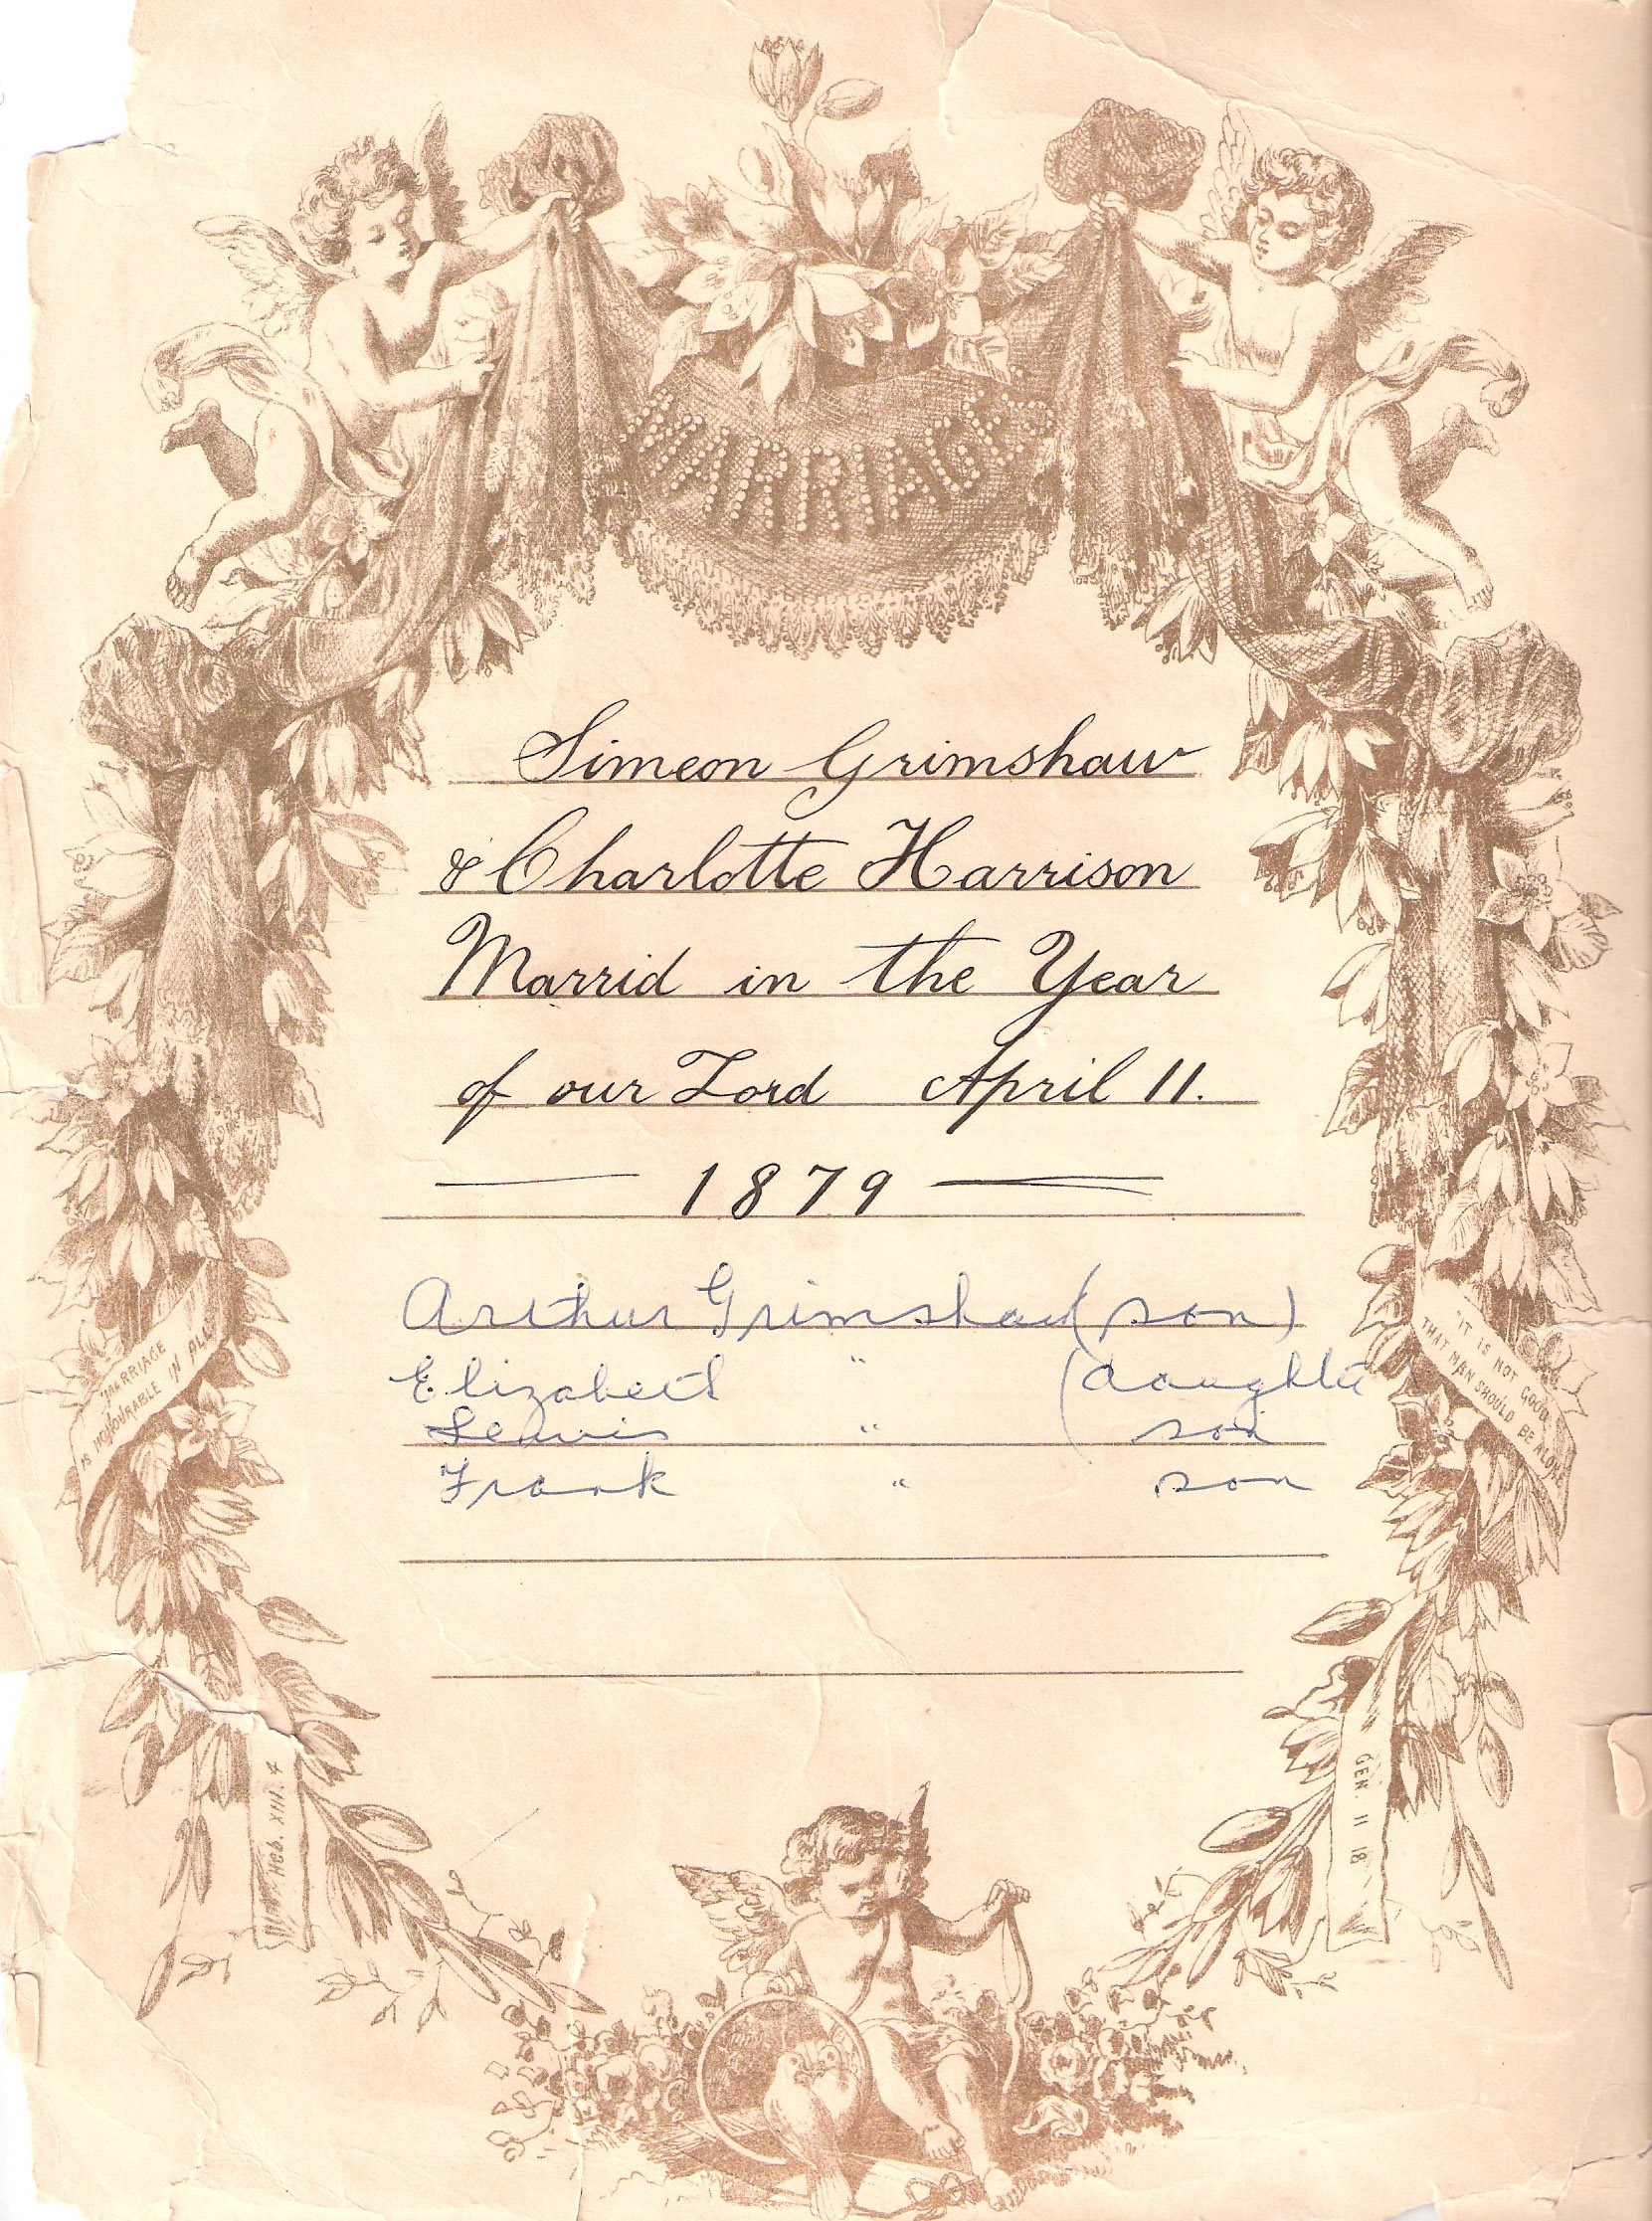 MARRIAGE
Simeon Grimshaw
& Charlotte Harrison
Marrid in the Year
of our Lord April 11.
— 1879 —
Arthur Grimshaw (son)
Elizabeth " (daughter
Lewis " ( son
Frank " son
"MARRIAGE
IS HONOURABLE IN ALL"
"IT IS NOT GOOD
THAT MAN SHOULD BE ALONE"
HEB. XIII. 4
GEN. 11 18